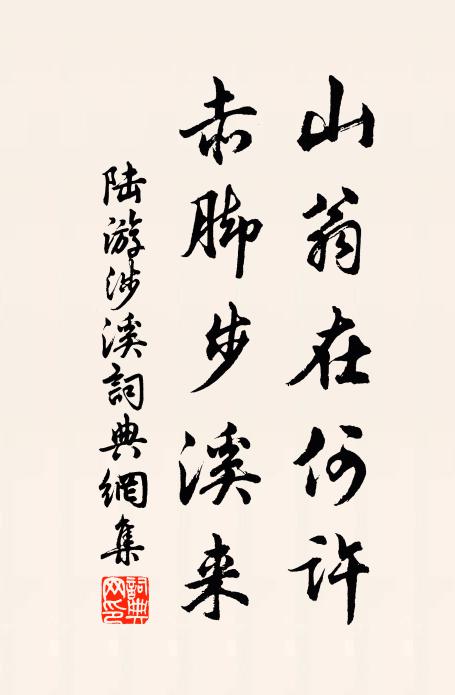 山翁在何许
赤脚步溪来
陆游涉溪詞典網集
詞典网印